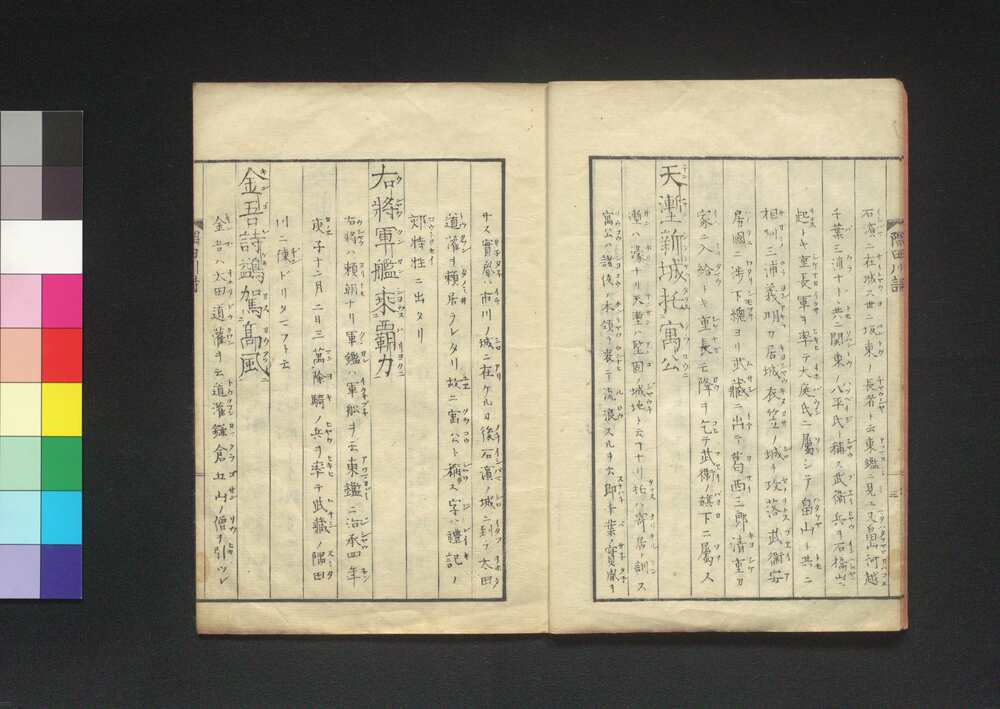 石濱ニ在城ニ世ニ坂東ノ長者ト云東鑑ニ見ユ又畠山河越
千葉三浦ナトト共ニ関東ノ八平氏ト稱ス武衛兵ヲ石橋山ニ
起ストキ重長軍ヲ率テ大庭氏ニ屬シテ畠山ト共ニ
相州三浦義明カ居城衣笠ノ城ヲ攻落ス武衛安
房國ニ渉ノ下總ヨリ武藏ニ出テ葛西三郎清重カ
家ニ入給トキ重長モ降ヲ乞テ武衛ノ旗下ニ屬ス
天塹新城托寓公
塹ハ濠ナリ天塹ハ堅固城地ト云フナリ托ハ寄居ト訓ス
寓公ハ諸侯ノ本領ヲ棄テ流浪スルヲ云即千葉ノ實胤ヲ
サス實胤ハ市川ノ城ニ在ケルヨ後石濱ノ城ニ到テ太田
道灌ヲ頼居ラレタリ故ニ寓公ト稱ス字ハ禮記ノ
郊特牲ニ出タリ
右將軍艦乘覇力
右將ハ賴朝ナリ軍艦ハ軍舩ヲ云東鑑ニ治承四年
庚子十二月二日三萬餘騎ノ兵ヲ率テ武藏ノ隅田
川ニ陳ドリタマフト云
金吾詩鷁駕高風
金吾ハ太田道灌ヲ云道灌鎌倉五山ノ僧ヲ引ツレ